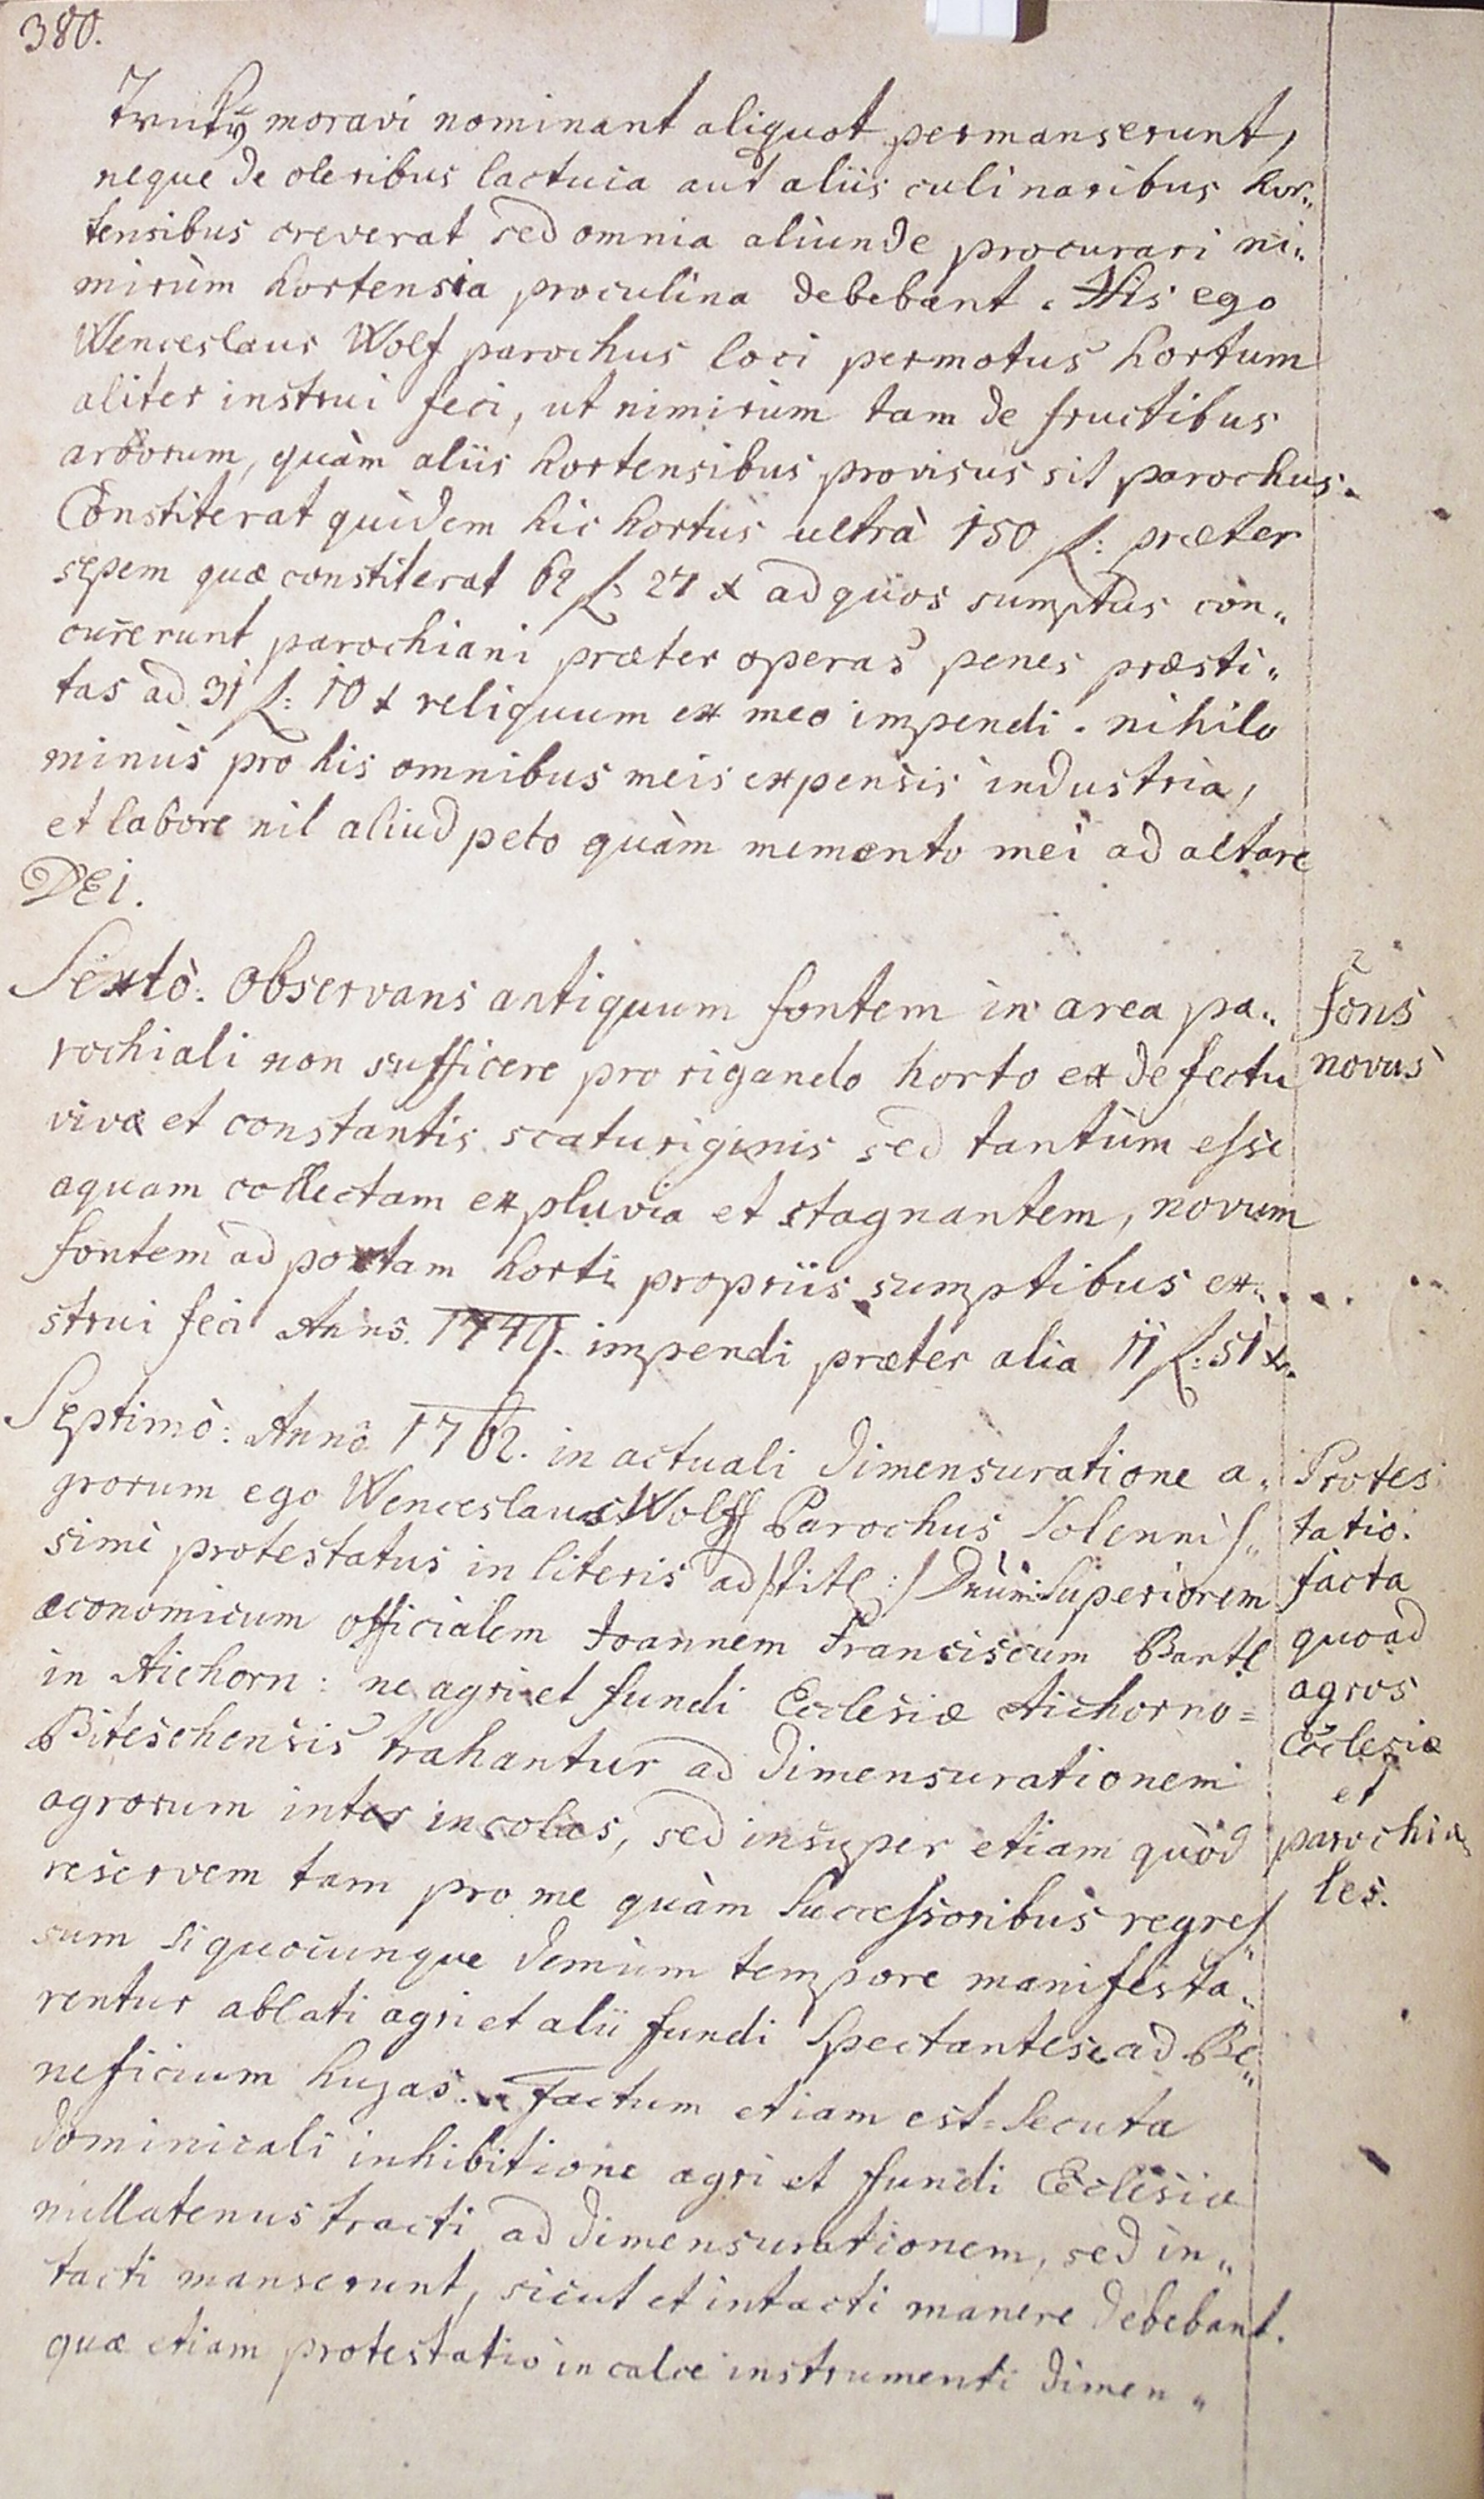 380.
moravi nominant aliquot permanserunt,
neque de oleribus lactuca aut aliis culinaribus hor„
tensibus creverat sed omnia aliunde procurari ni„
mirùm hortensia pro culina debebant. His ego
Wenceslaus Wolf parochus loci permotus hortum
aliter instrui feci, ut nimirum tam de fructibus
arborum, quàm aliis hortensibus provisus sit parochus.
Constiterat quidem hic hortus ultrà 150 f: præter
sepem quæ constiterat 62 f 27 x ad quos sumptus con„
currerunt parochiani præter operas penes præsti„
tas ad 31 f: 10 x reliquum ex meo impendi. nihilo
minus pro his omnibus meis expensis industria,
et labore nil aliud peto quàm memento mei ad altare
DEI.
Sextò. Observans antiquum fontem in area pa„
rochiali non sufficere pro rigando horto ex defectu
vivæ et constantis scaturiginis sed tantùm esse
aquam collectam ex pluvia et stagnantem, novum
fontem ad portam horti propriis sumptibus ex„
strui feci Anno. 1749. impendi præter alia 11 f: 51 x.
fons
novus
Septimò: Anno 1762. in actuali dimensuratione a„
grorum ego Wenceslaus Wolff Parochus solennis„
simè protestatus in literis ad /titl:/ Dnum Superiorem
æconomicum officialem Joannem Franciscum Bartl
in Aichorn: ne agri et fundi Ecclesiæ Aichorno=
Biteschensis trahantur ad dimensurationem
agrorum inter incolas, sed insuper etiam quòd
reservem tam pro me quàm Successoribus regres„
sum si quocunque demùm tempore manifesta„
rentur ablati agri et alii fundi spectantes ad Be„
neficium hujas. Factum etiam est secuta
dominicali inhibitione agri et fundi Ecclesiæ
nullatenus tracti ad dimensurationem, sed in„
tacti manserunt, sicut et intacti manere debebant.
quæ etiam protestatio in calce instrumenti dimen„
Protes
tatio
facta
quoad
agros
Ecclesiæ
et
parochia
les.